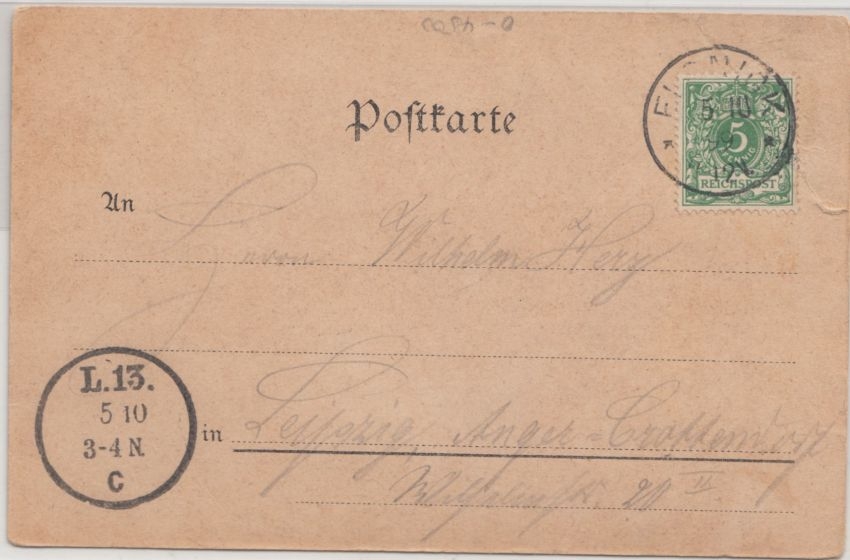 Postkarte
5 10
5
REICHSPOST
An
Herrn Wilhelm Herz
L.13.
5 10
3-4 N.
C
in Leipzig, Anger-Crottendorf
20 II